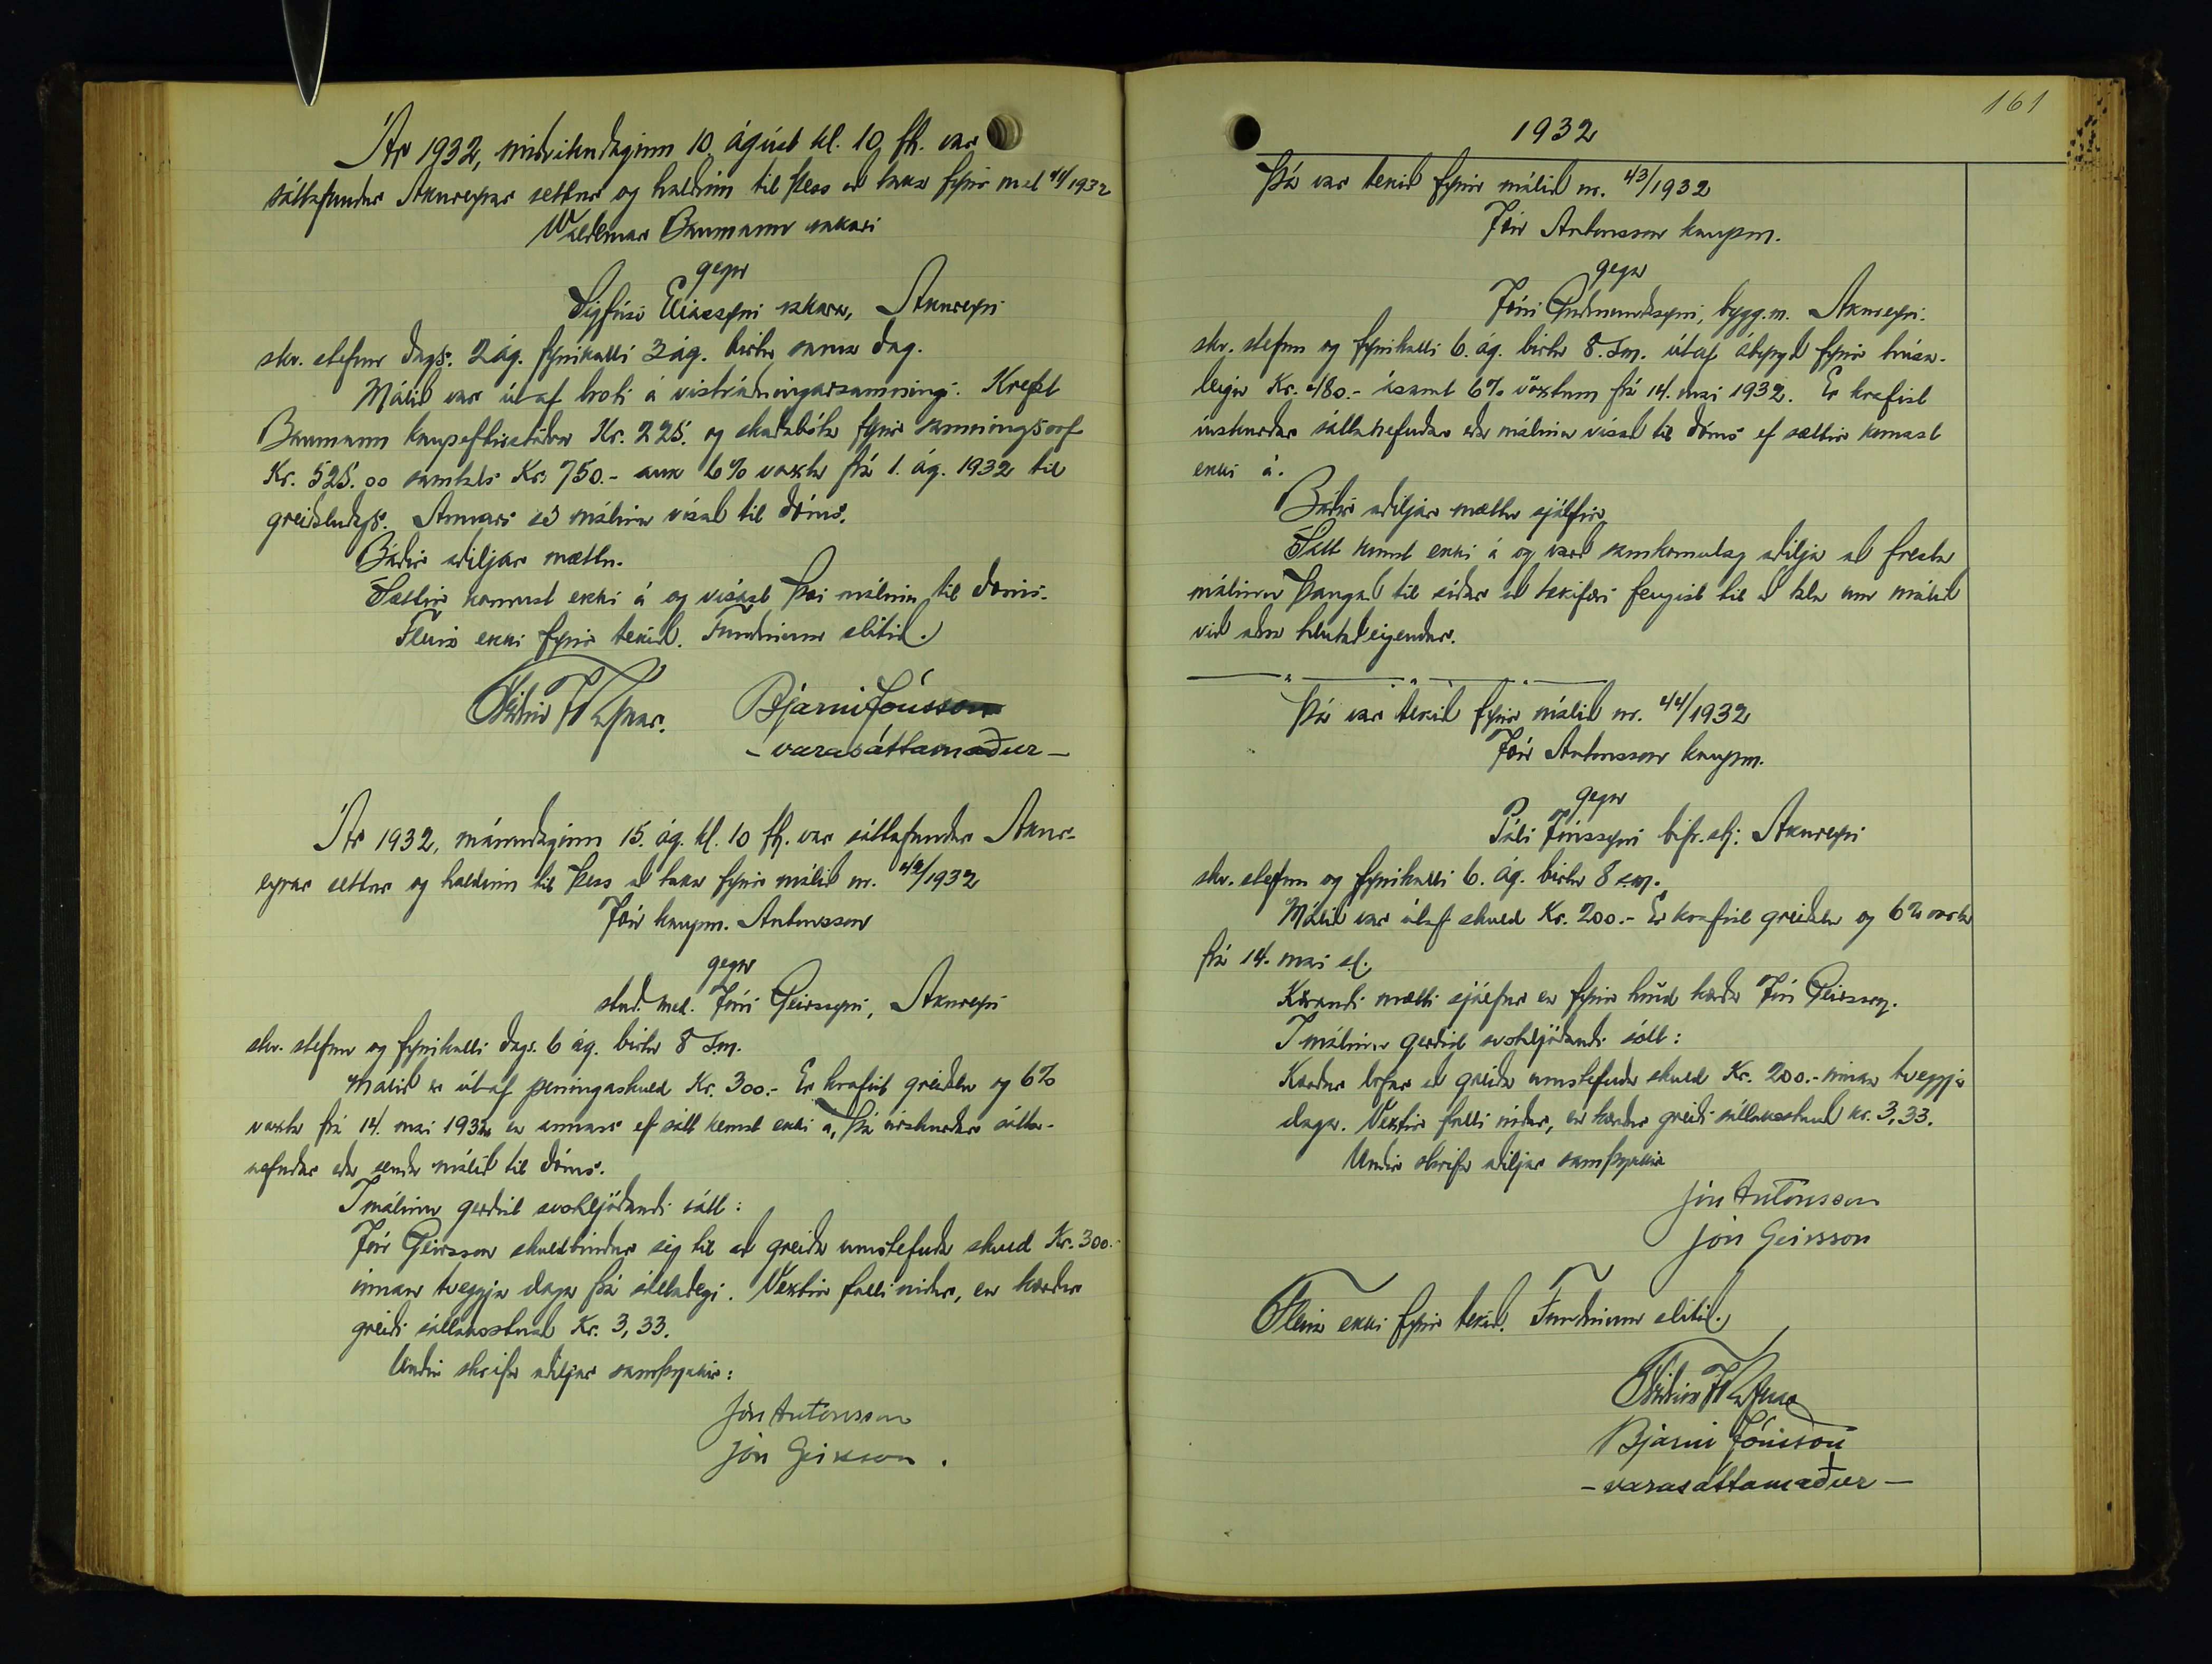 Ár 1932, miðvikudaginn 10. ágúst kl. 10 fh. var
sáttafundur Akureyrar settur og haldinn til þess að taka fyrir mál 41/1932
Waldemar Baumann rakari
gegn
Sigfúsi Elíassyni rakara, Akureyri
skv. stefnu dags. 2 ág. fyrirkalli 3 ág. birtu sama dag.
Málið var út af broti á vistráðningarsamningi. Krefst
Baumann kaupeftirstöðva Kr. 225. og skaðabóta fyrir samningsrof
Kr. 525.00 samtals Kr. 750.- auk 6% vaxta frá 1. ág. 1932 til
greiðsludags. Annars sé málinu vísað til dóms.
Báðir aðiljar mættu.
Sættir komust ekki á og vísast því málinu til dóms.
Fleira ekki fyrir tekið. Fundinum slitið.
Bjarni Jónsson
- varasáttamaður -
Ár 1932, mánudaginn 15. ág. kl. 10 fh. var sáttafundur Akur-
eyrar settur og haldinn til þess að taka fyrir málið nr. 42/1932
Jón kaupm. Antonsson
gegn
stud. med. Jóni Geirssyni, Akureyri
skv. stefnu og fyrirkalli dags. 6 ág. birtu 8 s.m.
Málið er út af peningaskuld Kr. 300.- Er krafist greiðslu og 6%
vaxta frá 14. mai 1932 en annars ef sátt kemst ekki á, þá úrskurðar sátta-
nefndar eða senda málið til dóms.
Í málinu gerðist svohljóðandi sátt:
Jón Geirsson skuldbindur sig til að greiða umstefnda skuld Kr. 300.-
innan tveggja daga frá sáttadegi. Vextir falli niður, en kærður
greiði sáttakostnað Kr. 3,33.
Undir skrifa aðiljar samþykkir:
Jón Antonsson
Jón Geirsson.
161
1932
Þá var tekið fyrir málið nr. 43/1932
Jón Antonsson kaupm.
gegn
Jóni Guðmundssyni, bygg.m. Akureyri.
skv. stefnu og fyrirkalli 6. ág. birtu 8. s.m. útaf ábyrgð fyrir húsa-
leigu Kr. 480.- ásamt 6% vöxtum frá 14. mai 1932. Er krafist
úrskurðar sáttanefndar eða málinu vísað til dóms ef sættir komast
ekki á.
Báðir aðiljar mættu sjálfir.
Sátt komst ekki á og varð samkomulag aðilja að fresta
málinu þangað til síðar að tækifæri fengist til að tala um málið
við aðra hlutaðeigendur.
Þá var tekið fyrir málið nr. 44/1932
Jón Antonsson kaupm.
gegn
Páli Jónssyni bifr.stj. Akureyri
skv. stefnu og fyrirkalli 6. ág. birtu 8 s.m.
Málið var útaf skuld Kr. 200.- Er krafist greiðslu og 6% vaxta
frá 14. mai s.l.
Kærandi mætti sjálfur en fyrir hönd kærða Jón Geirsson.
Í málinu gerðist svohljóðandi sátt:
Kærður lofar að greiða umstefnda skuld Kr. 200.- innan tveggja
daga. Vextir falli niður, en kærður greiði sáttakostnað kr. 3,33.
Undir skrifa aðiljar samþykkir
Jón Antonsson
Jón Geirsson
Fleira ekki fyrir tekið. Fundinum slitið.
Bjarni Jónsson
- varasáttamaður -